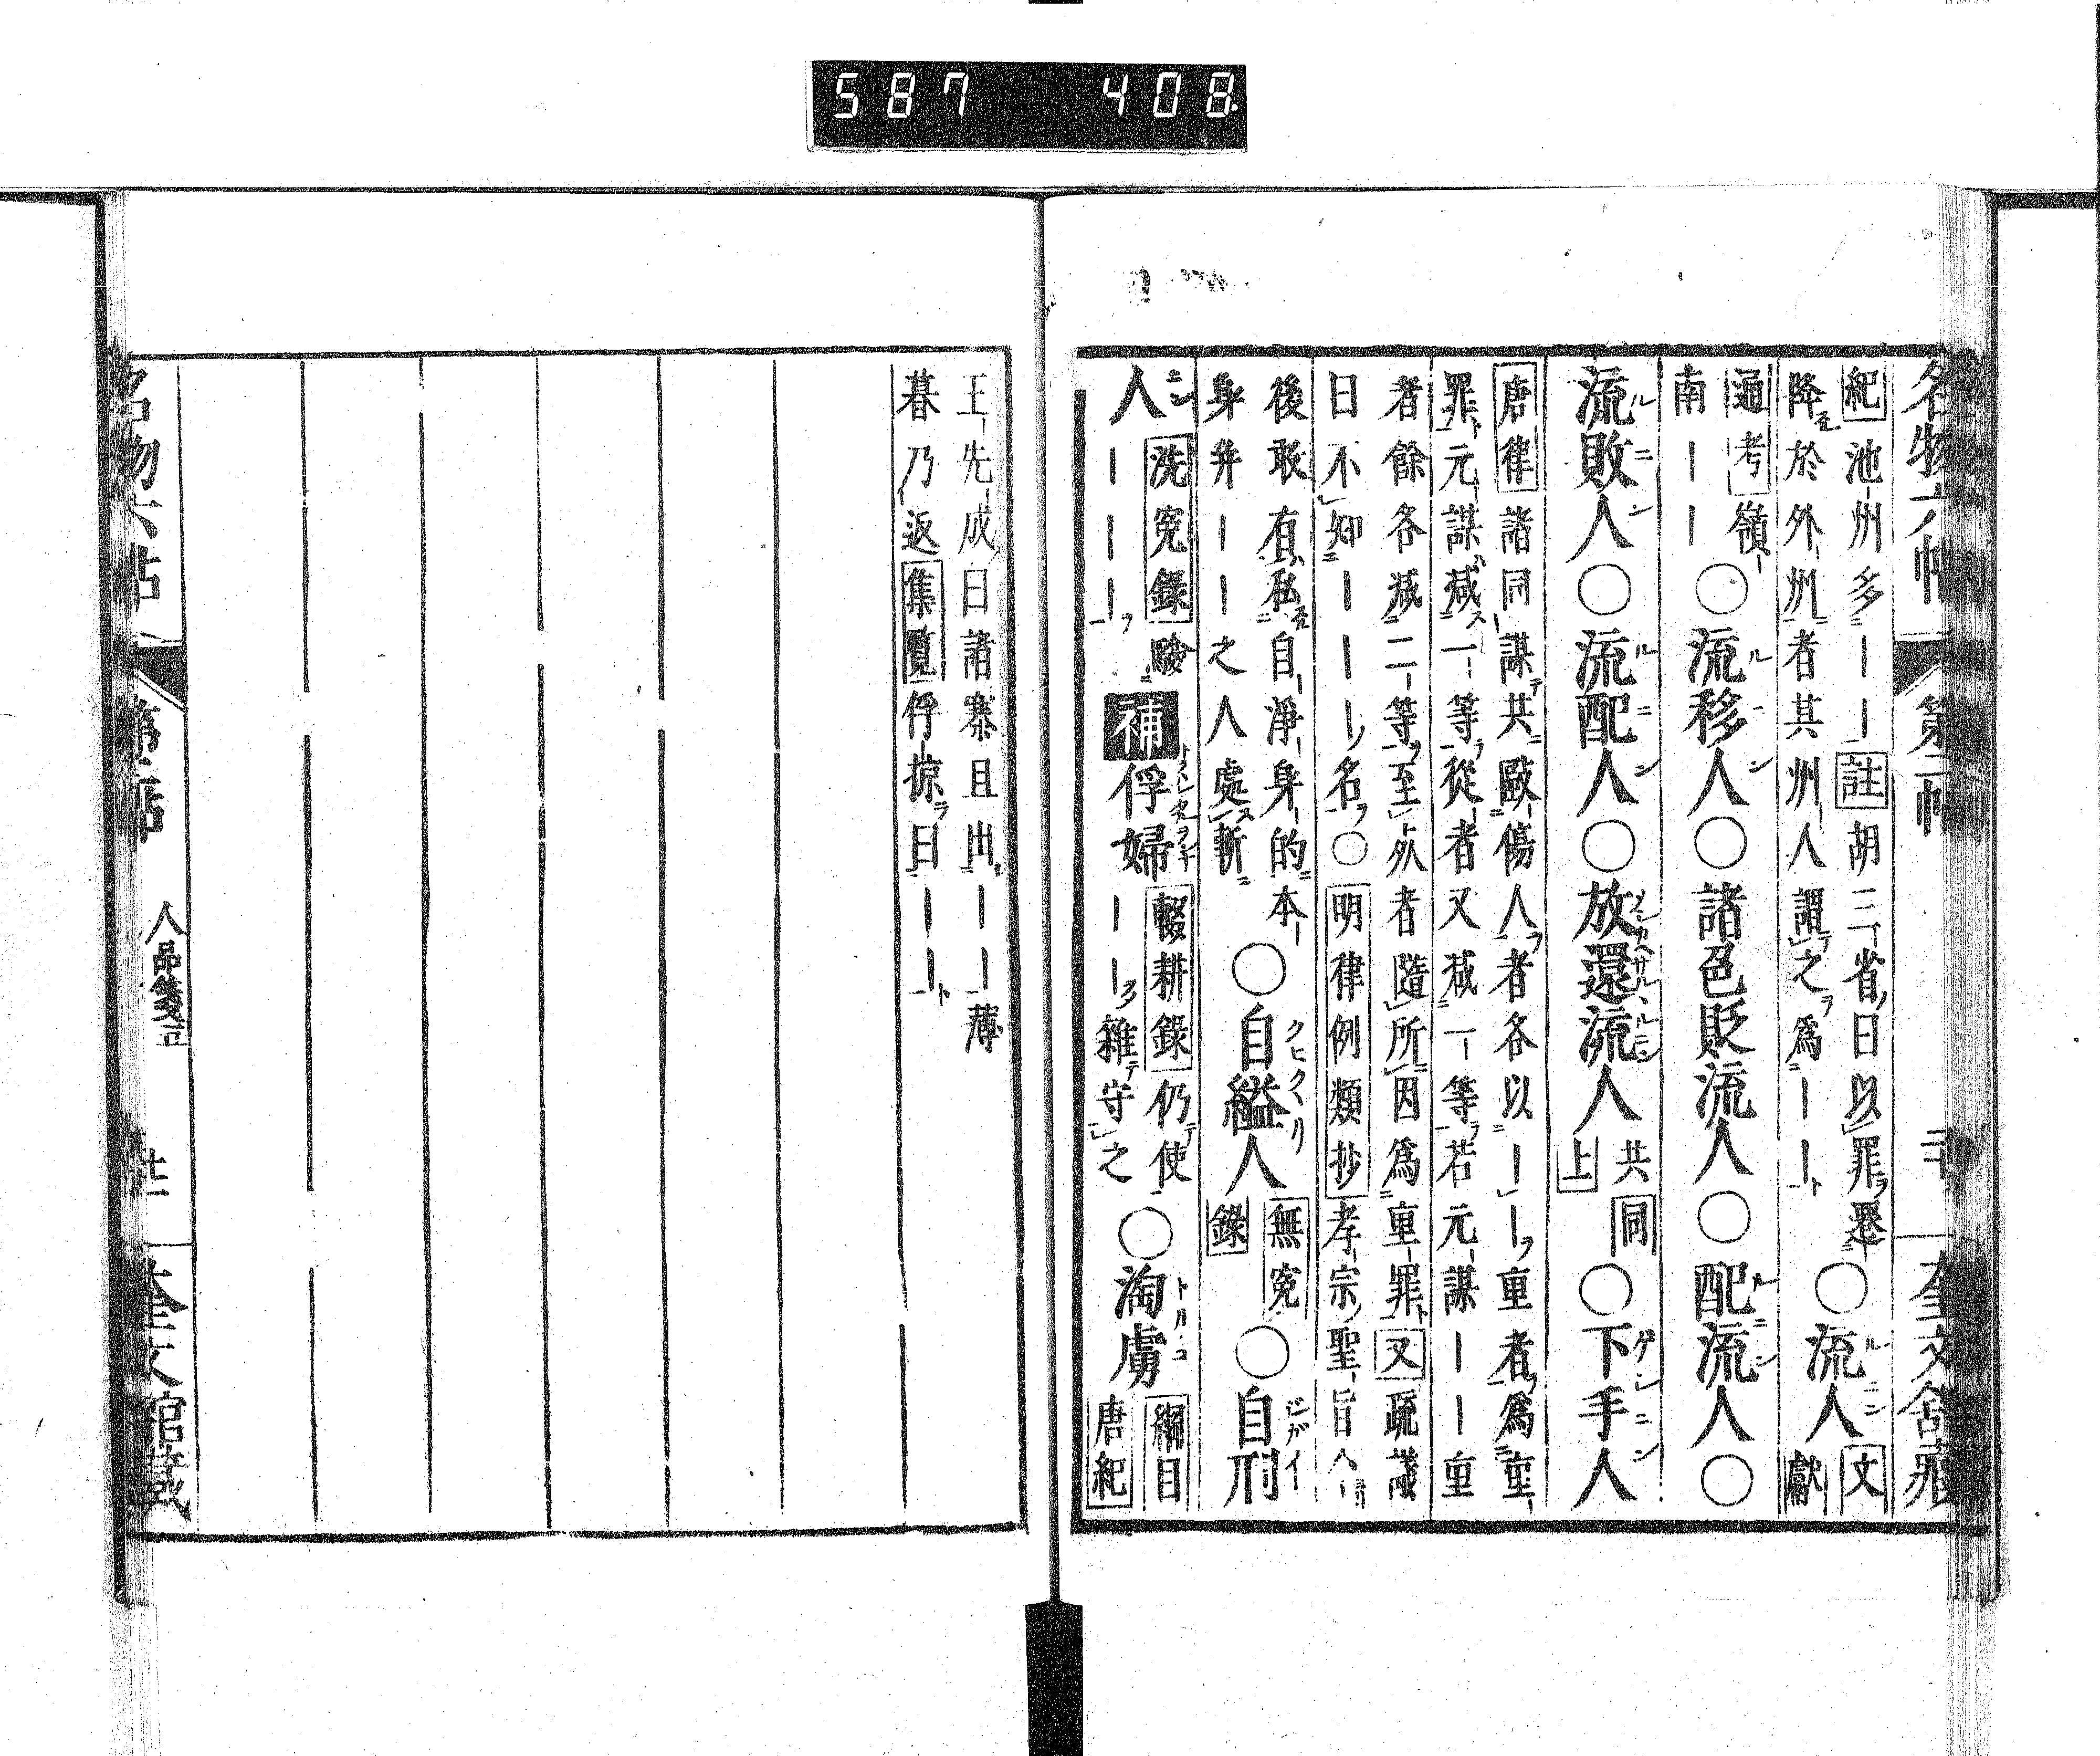 587 408
紀池州多丨丨註胡三省曰以罪還
降於外州者其州人謂之為丨丨
○流人文獻
通考嶺南丨丨○流移人○諸色貶流人○配流人○
流敗人○流配人○放還流人共同上○下手人
唐律諸同謀共毆傷人者各以丨丨重者為重
罪元謀減一等從者又減一等若元謀丨丨重
者餘各減二等至死者隨所因為重罪又疏議
曰不知丨丨丨名○明律例類抄孝宗聖旨今
後敢有私自淨身的本
身并丨丨之人處斬
○自縊人無冤錄○自刑
人洗冤錄驗丨丨丨
補俘婦輟耕錄仍使丨丨雜守之○淘虜綱目唐紀
王先成曰諸寨且出丨丨薄
暮乃返集覽俘掠曰丨丨
名物六帖 第二帖 奎文館藏
名物六帖 第二帖 人品箋 奎文館藏